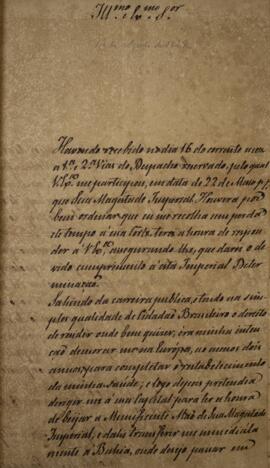 Illmo. Exmo. Snr.
Havendo recebido no dia 16 do corrente mez
a 1ª, e 2ª Vias do Despacho reservado, pelo qual
V. Exª me participou, em data de 22 de Maio p.p.
que Sua Magestade Imperial Houvera por
bem ordenar que eu me recolha sem perda
de tempo á sua Corte, tenho a honra de respon
der á V. Exª assegurando-lhe, que darei o de
vido cumprimento á esta Imperial Deter
minação.
Sahindo da carreira publica, e tendo na sim
ples qualidade de Cidadão Brasileiro o direito
de residir onde bem quizer, era minha inten
ção demorar-me na Europa, ao menos dois
annos para completar o restabelecimento
da minha saude; e logo depois pretendia
dirigir-me á essa Capital para ter a honra
de beijar a Munificente Mão de Sua Magestade
Imperial, e dahi transferir-me immediata
mente á Bahia, onde desejo passar em